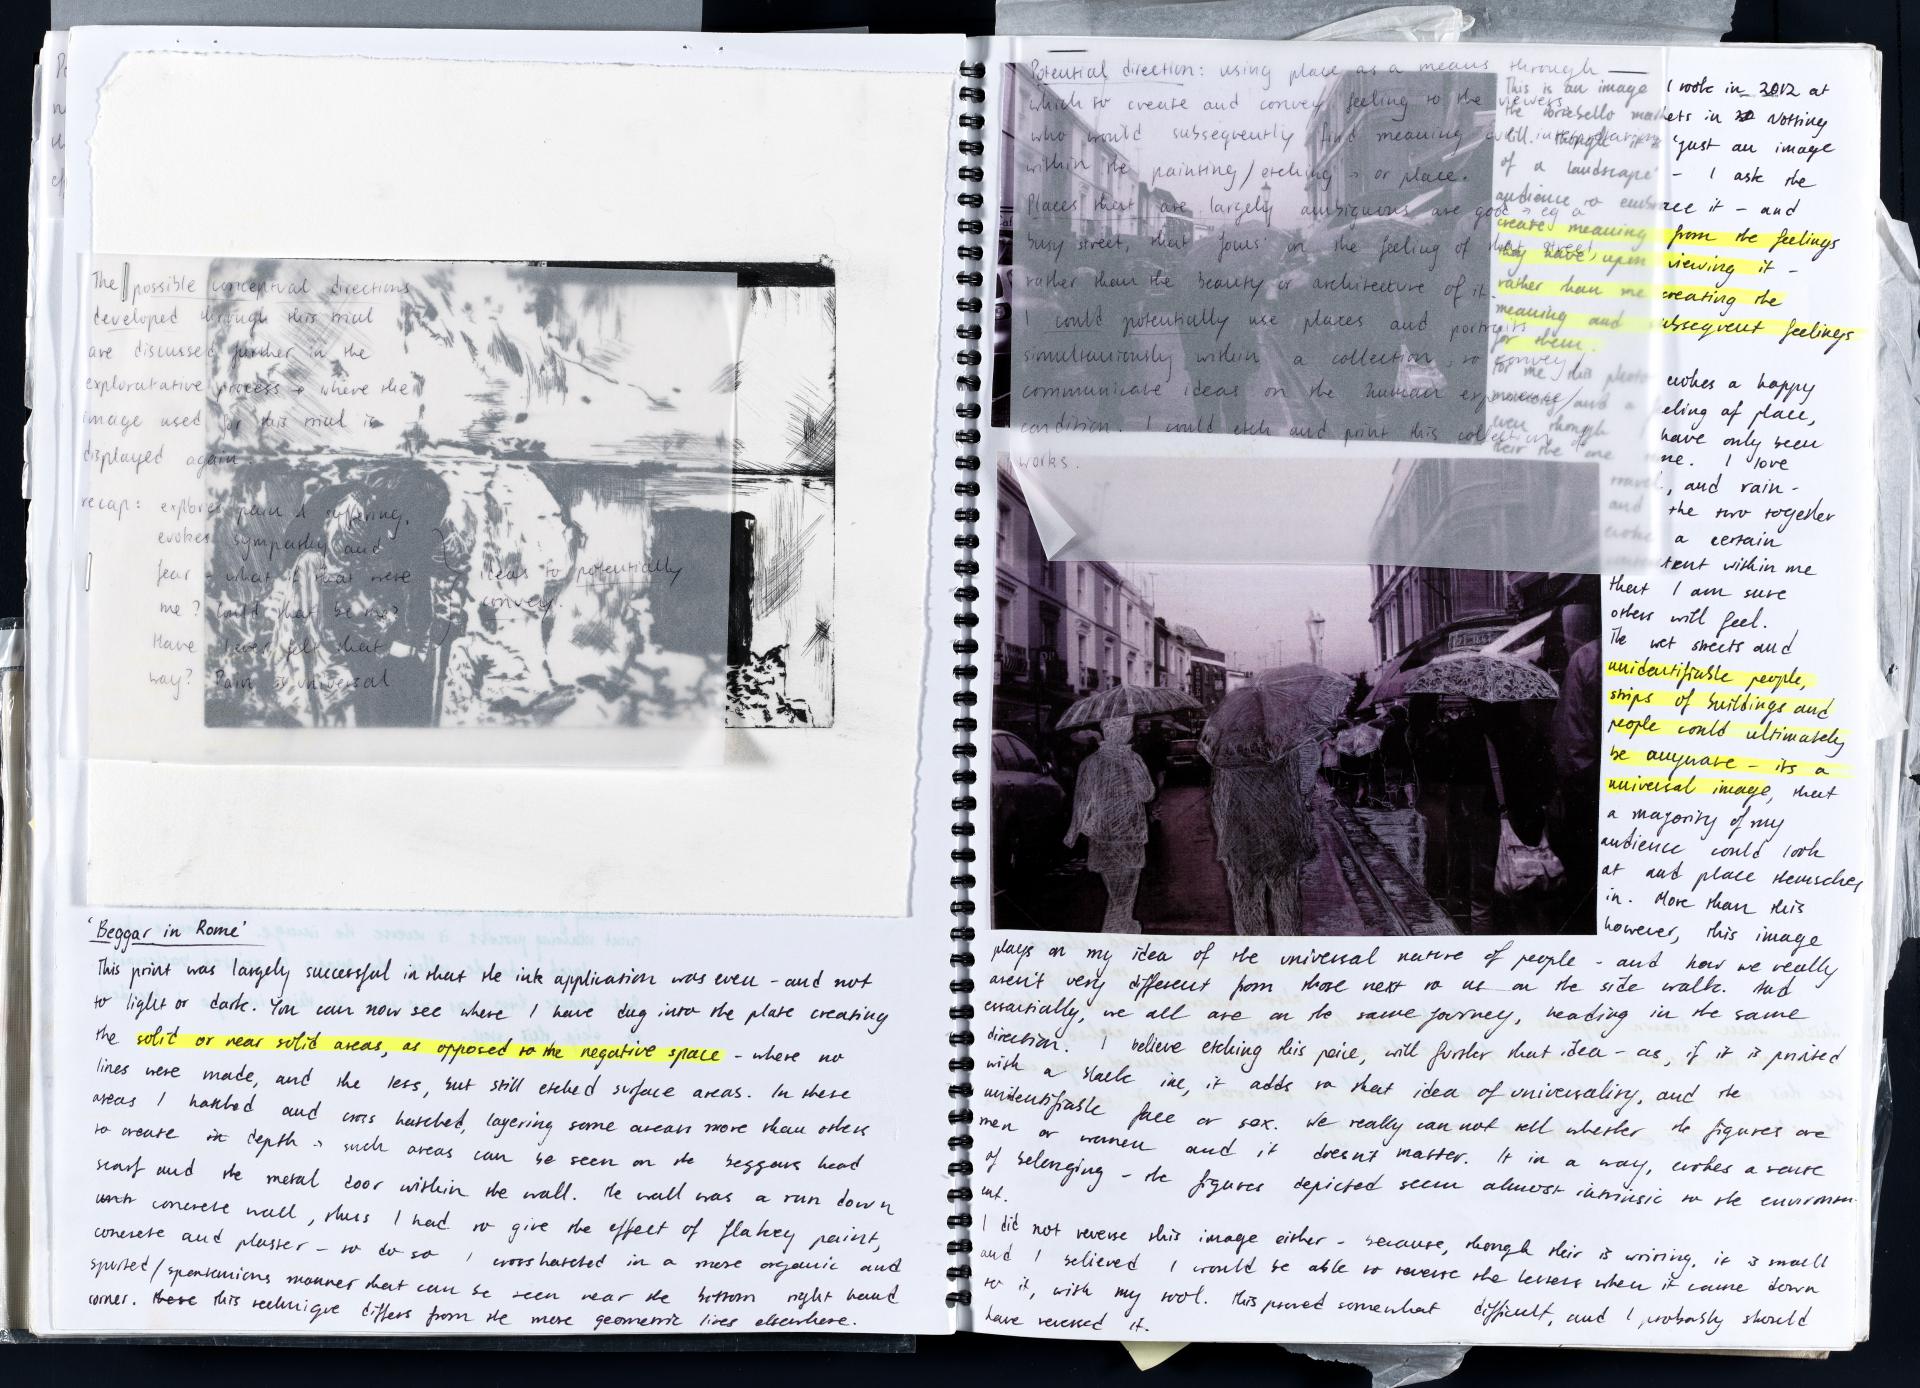 The possible conceptual directions
developed through this trial
are discussed further in the
explorative process & where the
image used for this trial is
displayed again.
recap: explores pain & suffering.
evokes sympathy and
fear - what if that were
me? Could that be me?
Have I ever felt that
way? Pain is universal
ideas to potentially
convey.
'Beggar in Rome'
This print was largely successful in that the ink application was even - and not
to light or dark. You can now see where I have dug into the plate creating
the solid or near solid areas, as opposed to the negative space - where no
lines were made, and the less, but still etched surface areas. In these
areas I hatched and cross hatched, layering some areas more than others
to create in depth > such areas can be seen on the beggars head
scarf and the metal door within the wall. The wall was a run down
concrete wall, thus I had to give the effect of flakey paint,
concrete and plaster - to do so I crosshatched in a more organic and
spurted/spontanious manner that can be seen near the bottom right hand
corner. this technique differs from the more geometric lines elsewhere.
Potential direction: using place as a means through
which to create and convey feeling to the viewers
who would subsequently find meaning
within the painting/etching > or place.
Places that are largely ambiguous are good > eg a
busy street, that focus on the feeling of that street,
rather than the beauty or architecture of it.
I could potentially use places and portraits
simultaniously within a collection, to convey/
communicate ideas on the human experience/
condition. I could etch and print this collection of
works.
This is an image I took in 2012 at
the Portobello markets in Notting
Hill. though it is 'just an image
of a landscape' - I ask the
audience to embrace it - and
create meaning from the feelings
they have upon viewing it -
rather than me creating the
meaning and subsequent feelings
for them.
For me this photo evokes a happy
memory and a feeling of place,
even though I have only been
their the one time. I love
travel, and rain -
and the two together
evoke a certain
content within me
that I am sure
others will feel.
The wet streets and
unidentifiable people,
strips of buildings and
people could ultimately
be anyware - its a
universal image, that
a majority of my
audience could look
at and place themselves
in. More than this
however, this image
plays on my idea of the universal nature of people - and how we really
aren't very different from those next to us on the side walk. And
essentially, we all are on the same journey, heading in the same
direction. I believe etching this peice, will further that idea - as, if it is printed
with a black ink, it adds to that idea of universality, and the
unidentifiable face or sex. We really can not tell whether the figures are
men or women and it doesn't matter. It in a way, evokes a sense
of belonging - the figures depicted seem almost intrinsic to the environm-
ent.
I did not reverse this image either - because, though their is writing, it is small
and I believed I would be able to reverse the letters when it came down
to it, with my tool. This proved somewhat difficult, and I probably should
have reversed it.